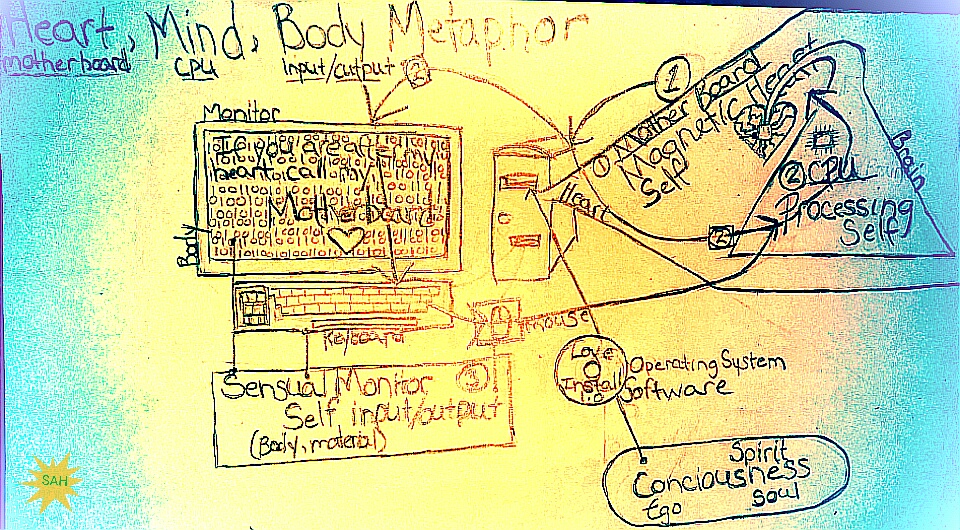 Heart, Mind, Body Metaphor
motherboard CPU input/output
2
1
Monitor
If you are after my
heart call my
Motherboard
Body
Keyboard
mouse
Sensual Monitor 3
Self input/output
(Body, material)
Heart
1 Mother Board
Magnetic Heart
Self
2 CPU
Processing
Self
Brain
2
Love
Install
1.0
Operating System
Software
Spirit
Conciousness
Ego Soul
SAH